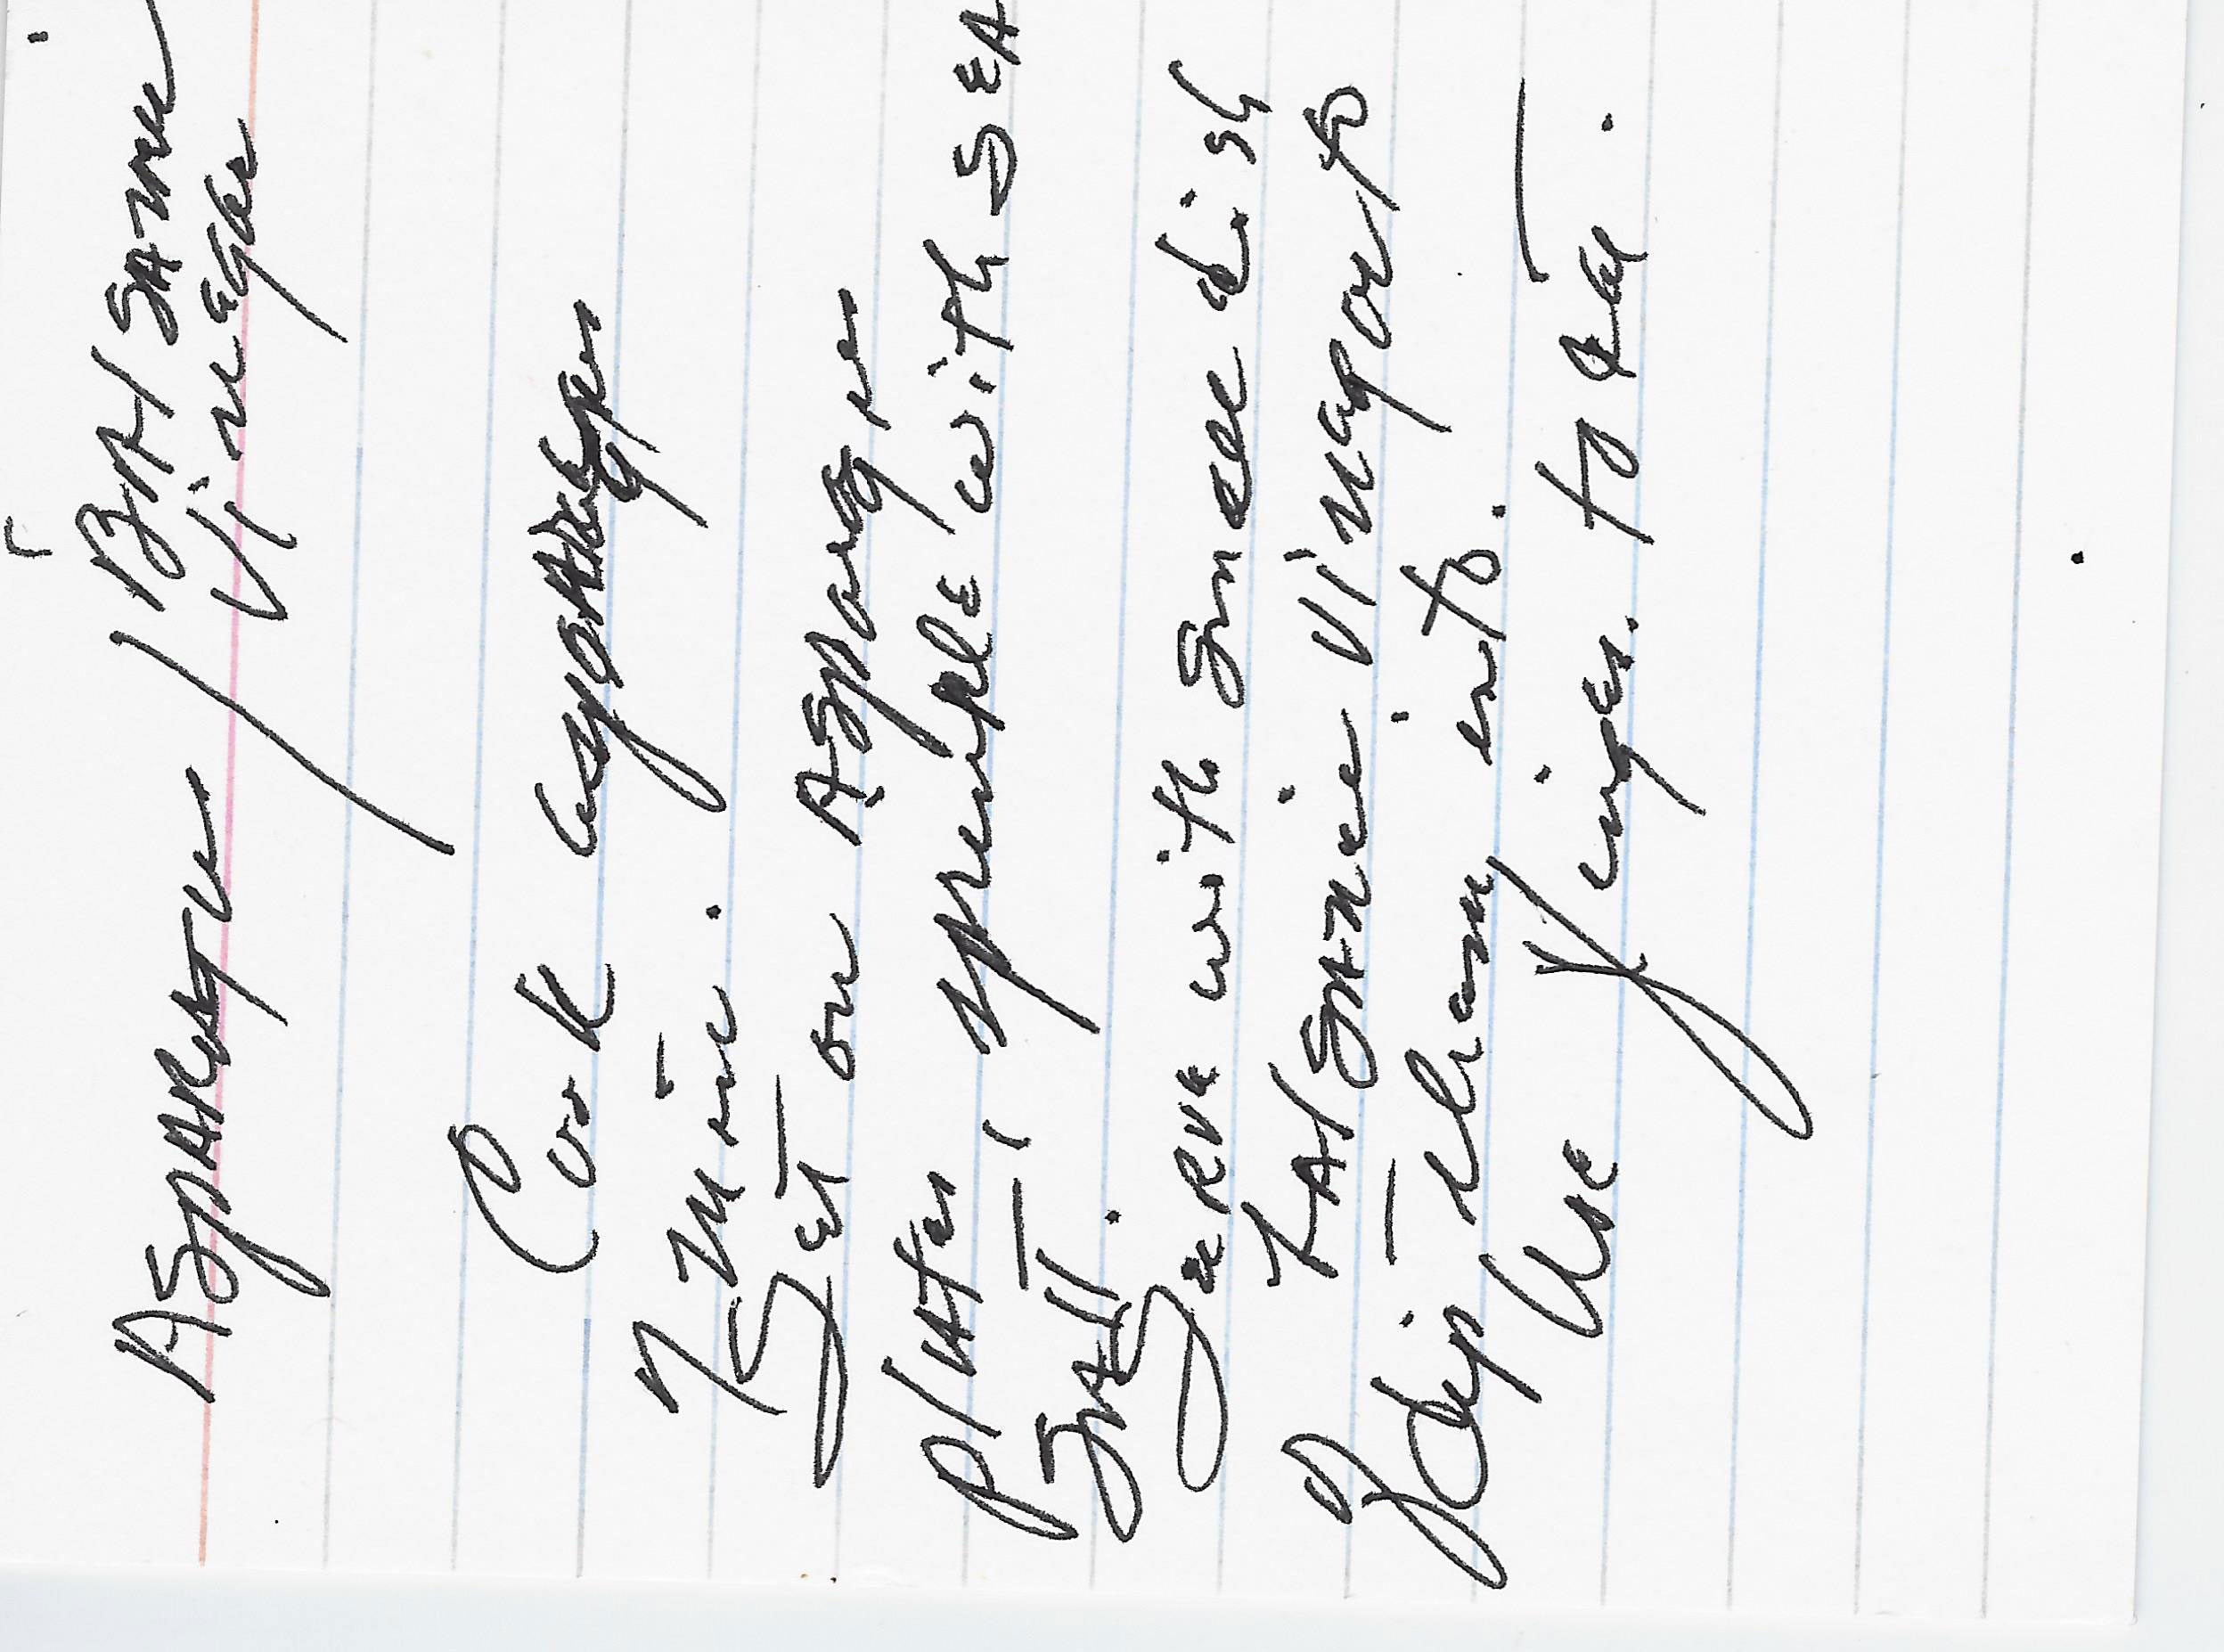 Asparagus / Balsamic
Vinegar
Cook asparagus
7 min.
Set on Asparagus
platter, sprinkle with SEA
Salt.
Serve with small dish
of balsamic vinegar to
dip them into.
Use fingers to eat.